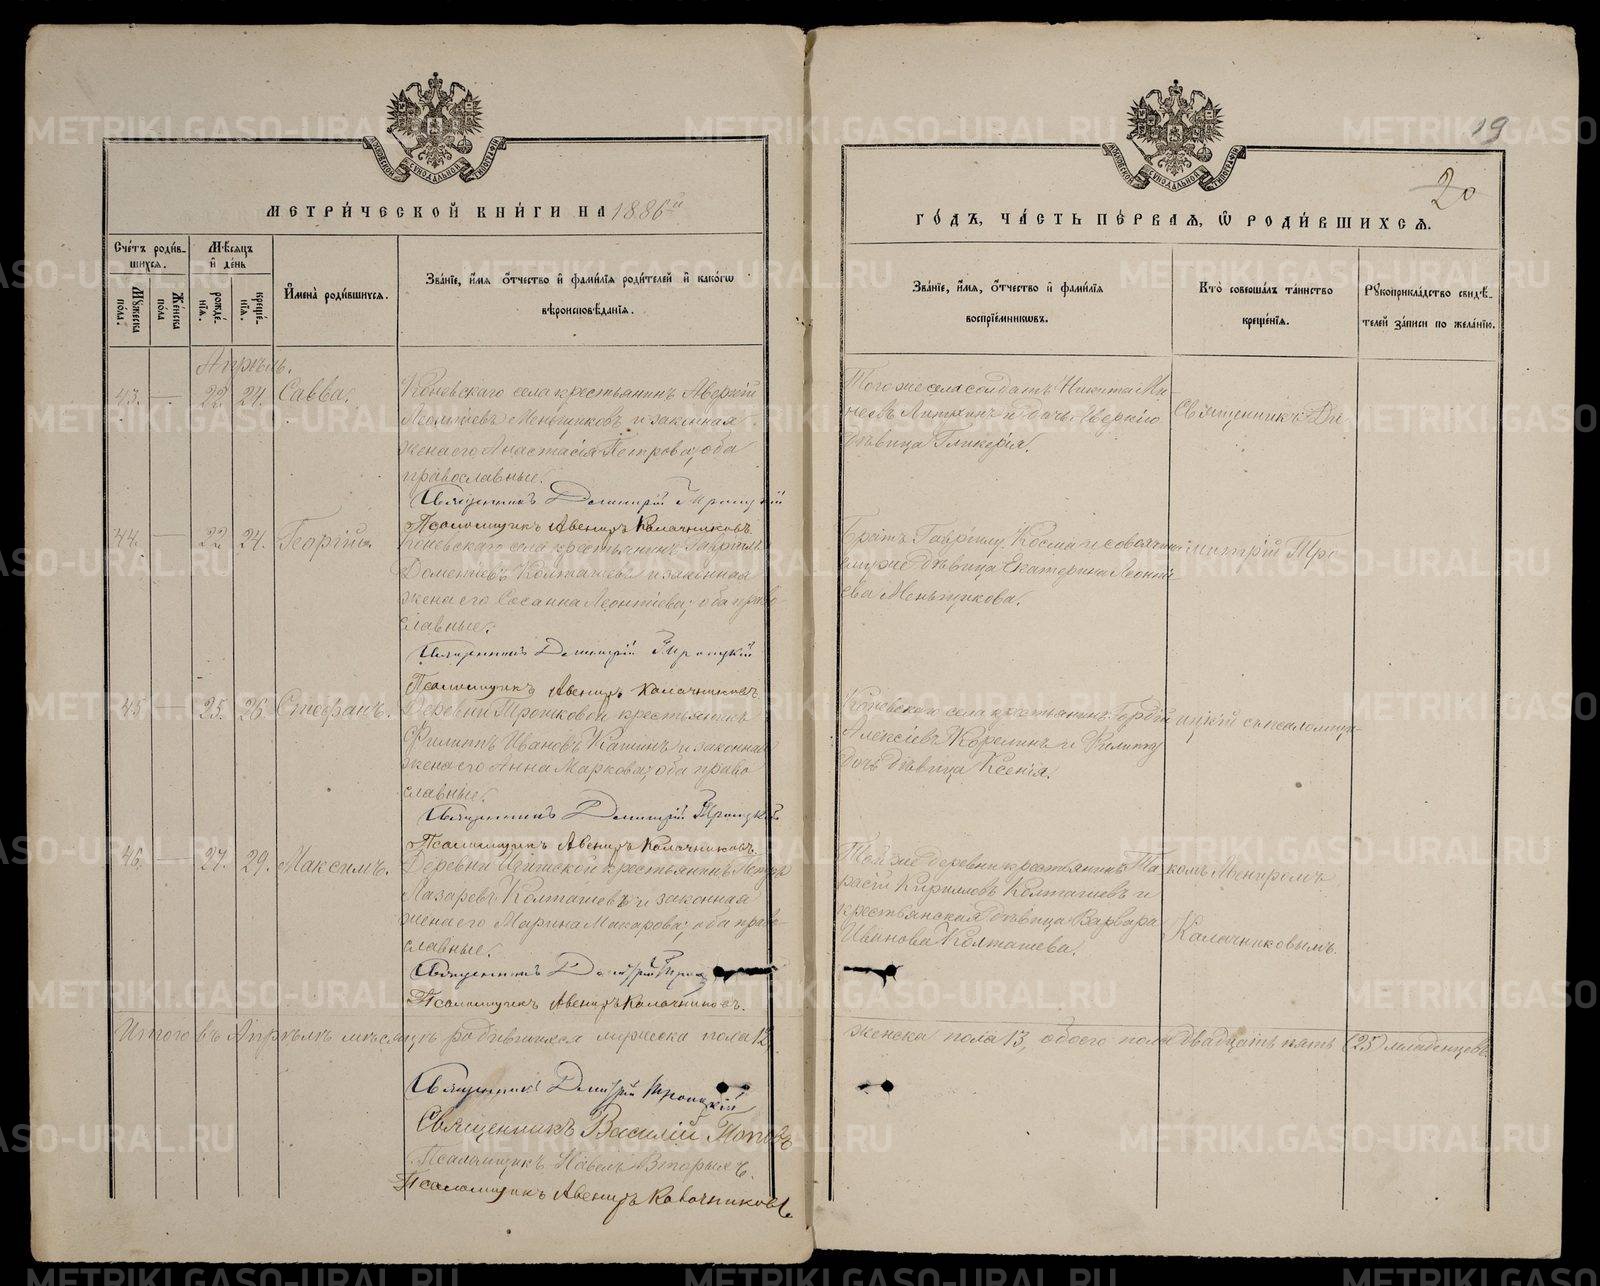 МЕТРИ́ЧЕСКОЙ КНИ́ГИ НА 1886й
Сче́тъ роди́в-
шихся.
Му́жеска пола̀.
Же́нска пола
Мѣ́сяцъ и де́нь
рожде́-
нїя.
креще́-
нїя.
И҆мена̀ роди́вшихся.
Зва́нїе, и҆́мя о҆́тчество и҆ фами́лїя роди́телей и҆ како́гѡ
вѣроисповѣ́данїя.
Апрѣль.
43. — 22 24. Савва.
Коневскаго села крестьянинъ Аверкій
Леонтіевъ Меньшиковъ и законная
жена его Анастасія Петрова; оба
православные.
Священникъ Димитрій Троицкій
Псаломщикъ Авениръ Калачниковъ.
44. — 22 24. Георгій.
Коневскаго села крестьянинъ Гавріилъ
Дометіевъ Колташевъ и законная
жена его Сосанна Леонтіева; оба право-
славные.
Священникъ Димитрій Троицкій
Псаломщикъ Авениръ Калачниковъ
45 — 25. 26 Стефанъ.
Деревни Трошковой крестьянинъ
Филиппъ Ивановъ Кашинъ и законная
жена его Анна Маркова; оба право
славные.
Священникъ Димитрій Троицкій
Псаломщикъ Авениръ Калачниковъ.
46. — 27. 29. Максимъ.
Деревни крестьянинъ Петръ
Лазаревъ Колташевъ и законная
жена его Марина Макарова; оба право-
славные.
Священникъ Димитрій
Псаломщикъ Авениръ Калачниковъ.
Итого въ Апрѣлѣ мѣсяцѣ родившихся мужеска пола 12,
Священникъ Димитрій Троицкій
Священникъ Василій Поповъ
Псаломщикъ Павелъ Вторыхъ.
Псаломщикъ Авениръ Калачниковъ.
19
20
ГО́ДЪ, ЧА́СТЬ ПЕ́РВАЯ, Ѡ҆ РОДИ́ВШИХСЯ.
Зва́нїе, и҆́мя, о҆́тчество и҆ фами́лїя
воспрїе́мникѡвъ.
Кто̀ соверша́лъ та́инство
креще́нїя.
Рукоприкла́дство свидѣ́-
телей за́писи по жела́нїю.
Того же села солдатъ Никита Ми-
неевъ и дочь Аверкія
дѣвица Гликерія.
Священникъ Ди-
Братъ Гавріилу Косма и
дѣвица Екатерина Леонті
ева Меньшикова.
митрій Тро
Коневскаго села крестьянинъ Гордій
Алексіевъ Корелинъ и Филиппу
дочь дѣвица Ксенія.
ицкій съ псаломщи-
Той же деревни крестьянинъ Та
расій Кирилловъ Колташевъ и
крестьянская дѣвица Варвара
Иванова Колташева.
комъ Авениромъ
Калачниковымъ.
женска пола 13, обоего пола двадцать пять (25) младенцевъ.
METRIKI.GASO-URAL.RU